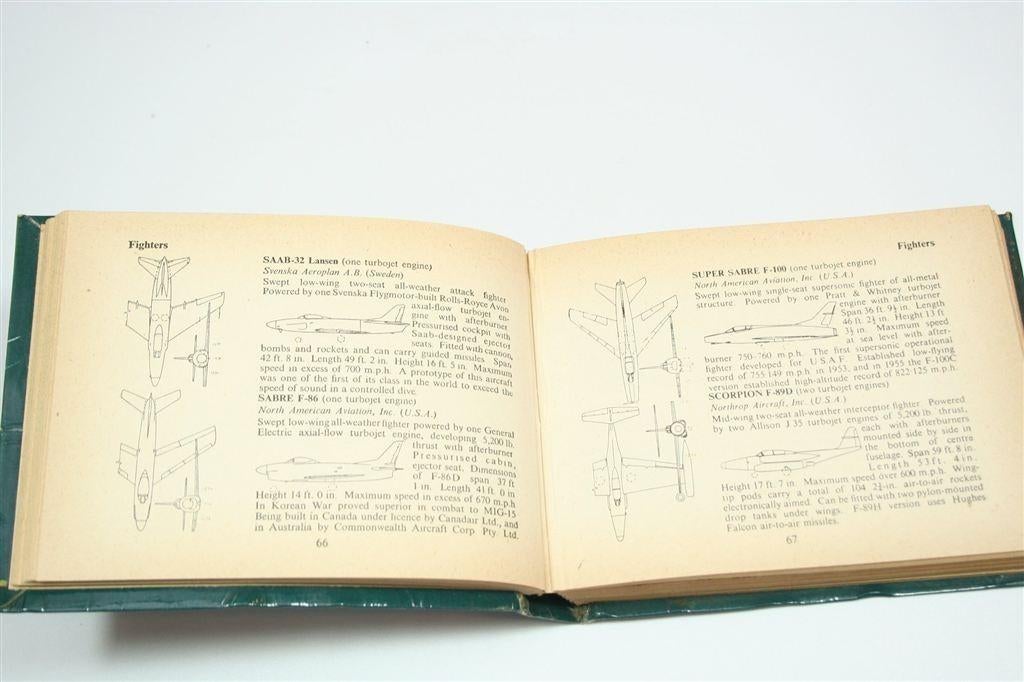 Fighters
SAAB-32 Lansen (one turbojet engine)
Svenska Aeroplan A.B. (Sweden)
Swept low-wing two-seat all-weather attack fighter
Powered by one Svenska Flygmotor-built Rolls-Royce Avon
axial-flow turbojet en-
gine with afterburner
Pressurised cockpit with
Saab-designed ejector
seats. Fitted with cannon,
bombs and rockets and can carry guided missiles Span
42 ft. 8 in. Length 49 ft. 2 in. Height 16 ft. 5 in. Maximum
speed in excess of 700 m.p.h. A prototype of this aircraft
was one of the first of its class in the world to exceed the
speed of sound in a controlled dive.
SABRE F-86 (one turbojet engine)
North American Aviation, Inc. (U.S.A.)
Swept low-wing all-weather fighter powered by one General
Electric axial-flow turbojet engine, developing 5,200 lb.
thrust with afterburner
Pressurised cabin,
ejector seat. Dimensions
of F-86D span 37 ft
1 in. Length 41 ft. 0 in
Height 14 ft. 0 in. Maximum speed in excess of 670 m.p.h
In Korean War proved superior in combat to MIG-15
Being built in Canada under licence by Canadair Ltd., and
in Australia by Commonwealth Aircraft Corp. Pty. Ltd.
66
Fighters
SUPER SABRE F-100 (one turbojet engine)
North American Aviation, Inc (U.S.A.)
Swept low-wing single-seat supersonic fighter of all-metal
structure. Powered by one Pratt & Whitney turbojet
engine with afterburner
Span 36 ft. 9½ in. Length
46 ft. 2½ in. Height 13 ft
3½ in. Maximum speed
at sea level with after-
burner 750-760 m.p.h. The first supersonic operational
fighter developed for U.S.A.F. Established low-flying
record of 755.149 m.p.h in 1953, and in 1955 the F-100C
version established high-altitude record of 822.125 m.p.h.
SCORPION F-89D (two turbojet engines)
Northrop Aircraft, Inc. (U.S.A.)
Mid-wing two-seat all-weather interceptor fighter. Powered
by two Allison J 35 turbojet engines of 5,200 lb. thrust,
each with afterburners
mounted side by side in
the bottom of centre
fuselage. Span 59 ft. 8 in.
Length 53 ft. 4 in.
Height 17 ft. 7 in. Maximum speed over 600 m.p.h. Wing-
tip pods carry a total of 104 2¾-in. air-to-air rockets
electronically aimed. Can be fitted with two pylon-mounted
drop tanks under wings. F-89H version uses Hughes
Falcon air-to-air missiles.
67